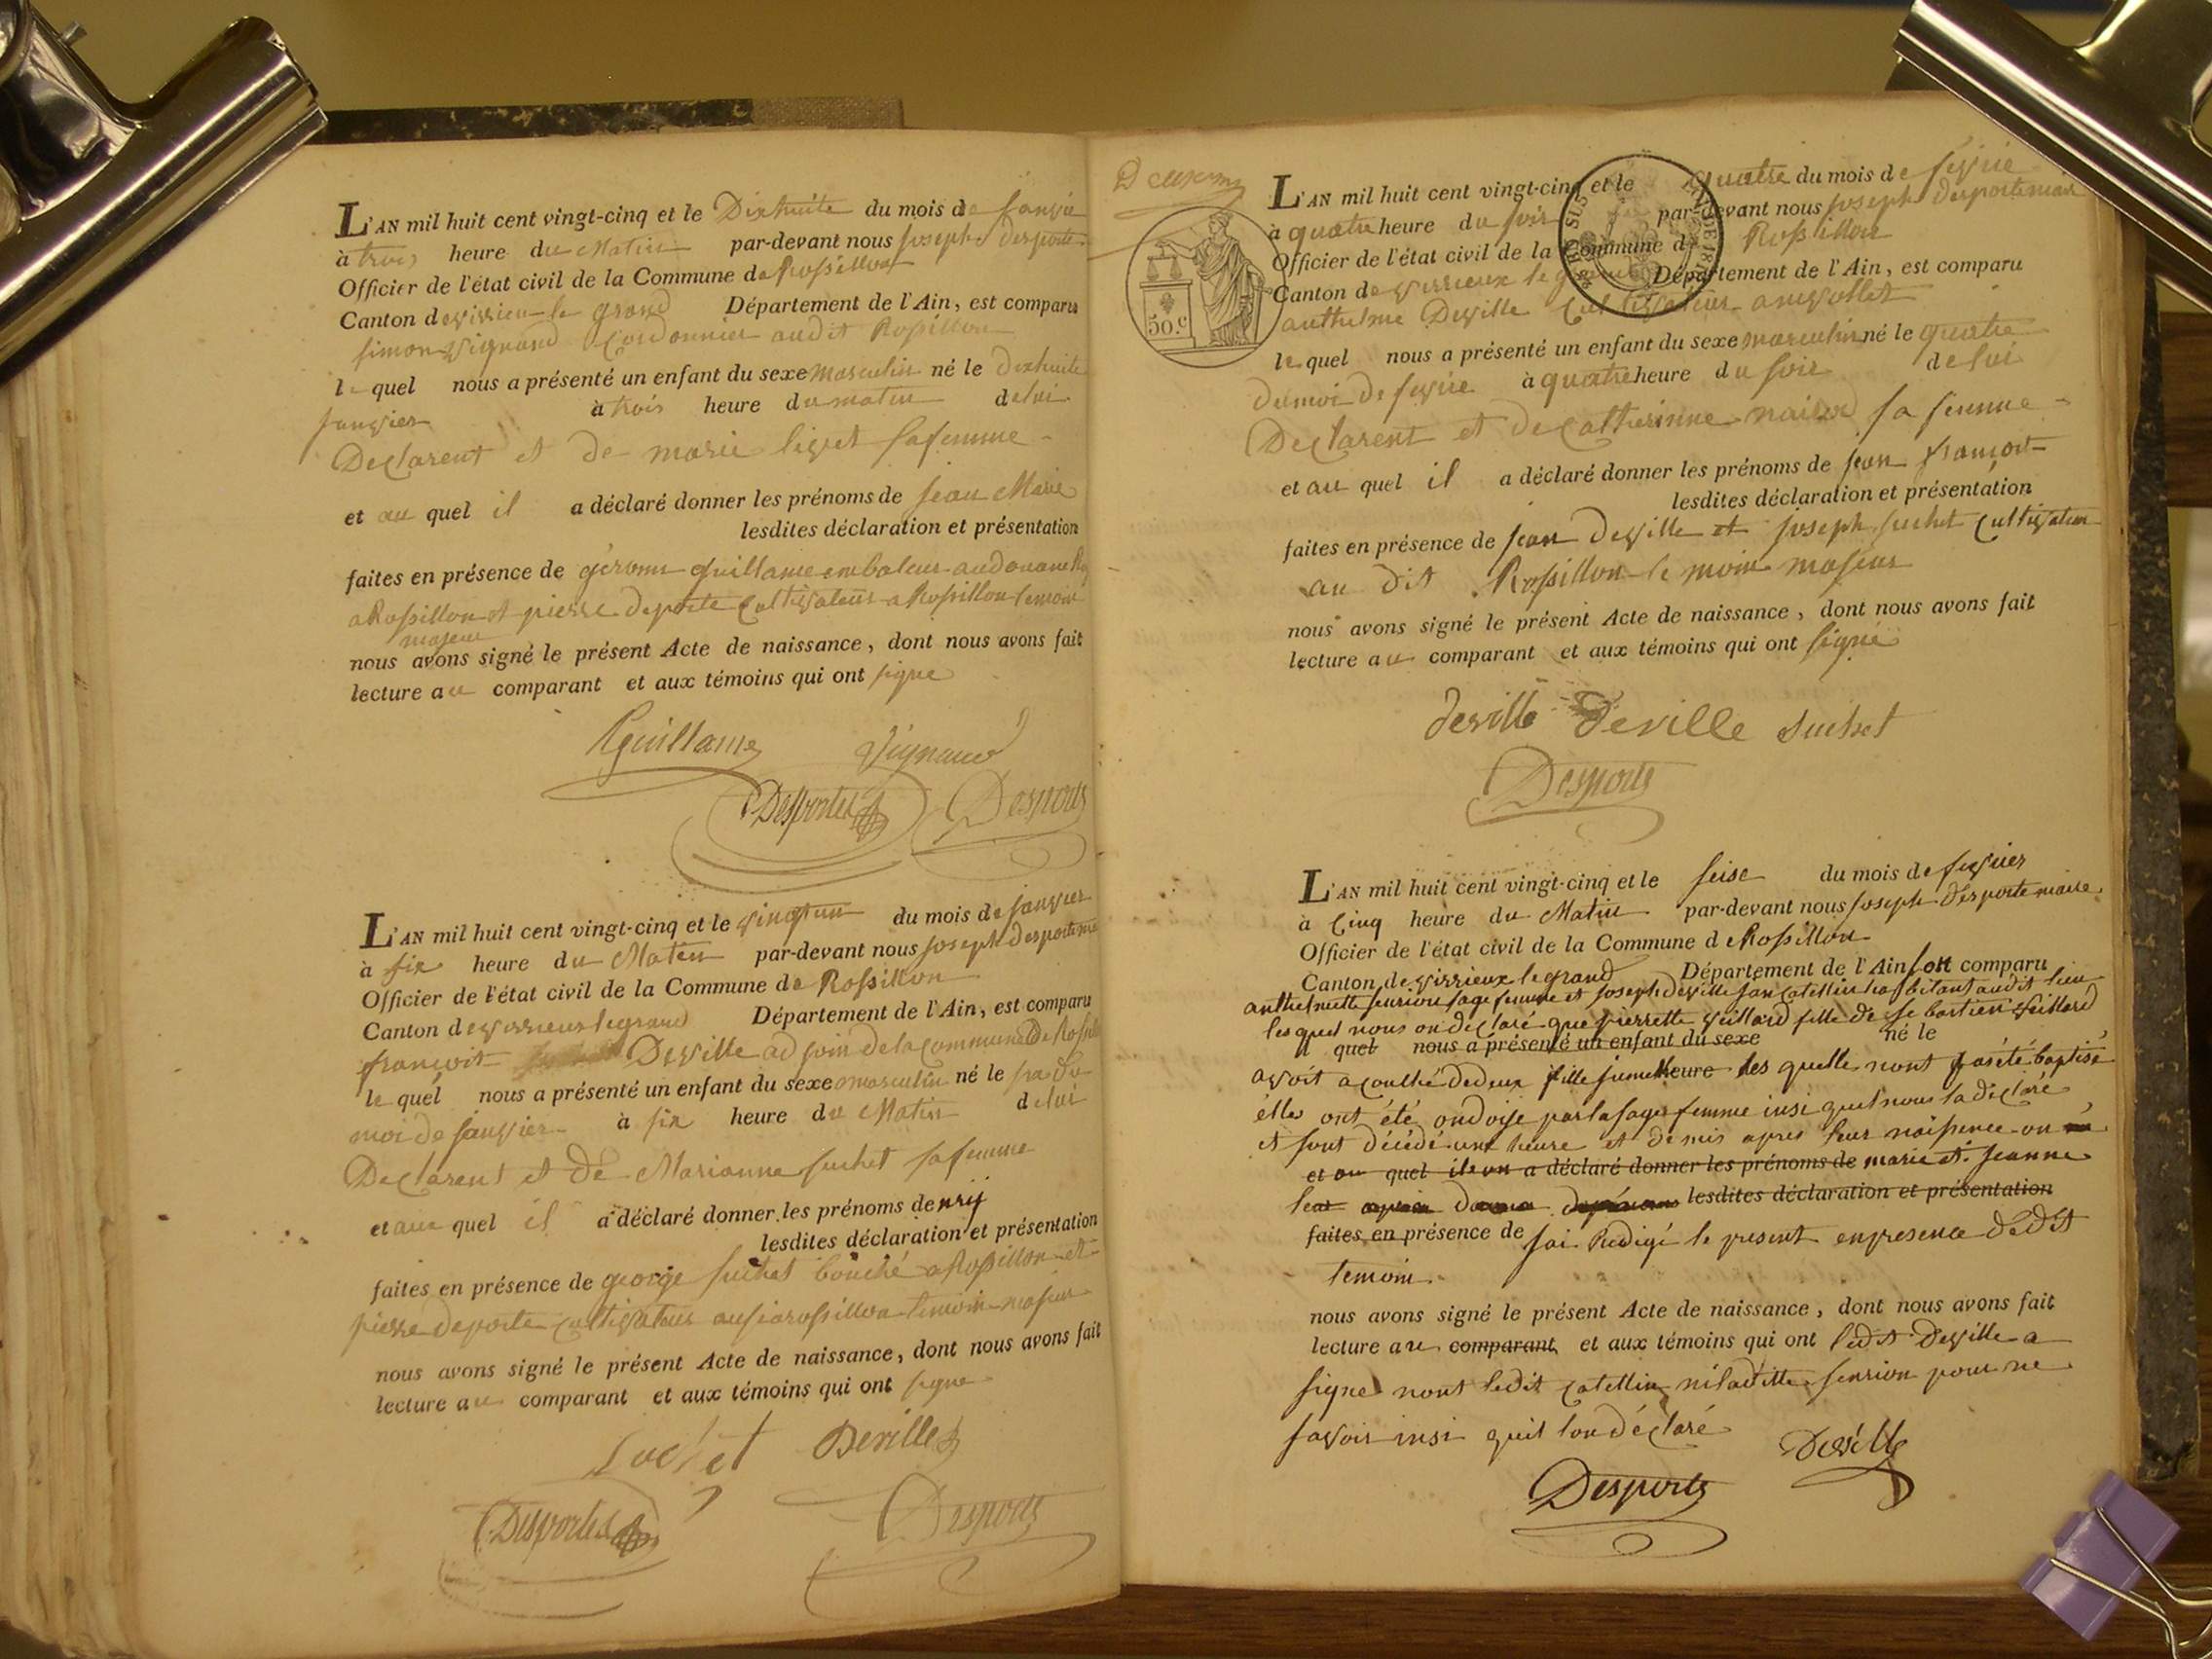 L'AN mil huit cent vingt-cinq et le Dixhuite du mois de janvié
à trois heure du Matin par-devant nous joseph desporte
Officier de l'état civil de la Commune de Rossillon
Canton de virieu le grand Département de l'Ain, est comparu
simon vignand Cordonnier audit Rossillon
le quel nous a présenté un enfant du sexe masculin né le dixhuite
janvier à trois heure du matin de lui
Declarent et de marie liget sa femme
et au quel il a déclaré donner les prénoms de jean Marie
lesdites déclaration et présentation
faites en présence de gérome guillame embaleur audouane
a Rossillon et pierre deporte Cultivateur a Rossillon temoin
majeur
nous avons signé le présent Acte de naissance, dont nous avons fait
lecture au comparant et aux témoins qui ont signe
Rguillame Vignand
Desportes Desporte
L'AN mil huit cent vingt-cinq et le vingtun du mois de janvier
à six heure du Maten par-devant nous joseph desporte
Officier de l'état civil de la Commune de Rossillon
Canton de virieux le grand Département de l'Ain, est comparu
françoit Deville adjoin de la commune De
le quel nous a présenté un enfant du sexe masculin né le
moi de janvier à six heure du Matin de lui
Declarent et de Marianne suchet sa femme
et au quel il a déclaré donner les prénoms de nrij
lesdites déclaration et présentation
faites en présence de george suchet bouché a Rossillon et
pierre deporte cultivateur ausi a rossillon temoin majeur
nous avons signé le présent Acte de naissance, dont nous avons fait
lecture au comparant et aux témoins qui ont signe
Suchet Deville
Desportes Desporte
Deuxem
50.c
L'AN mil huit cent vingt-cinq et le quatre du mois de fevrié
à quatre heure du soir par-devant nous joseph desporte mair
Officier de l'état civil de la Commune de Rossillon
Canton de virrieux le grand Département de l'Ain, est comparu
anthelme Deville Cultivateur
le quel nous a présenté un enfant du sexe masculin né le quatre
du moi de fevrie à quatre heure du soir de lui
Declarent et de Catherinne naisod sa femme
et au quel il a déclaré donner les prénoms de jean françoit
lesdites déclaration et présentation
faites en présence de jean Deville et joseph suchet Cultivateur
au dit Rossillon le moin majeur
nous avons signé le présent Acte de naissance, dont nous avons fait
lecture au comparant et aux témoins qui ont signé
deville Deville suchet
Desporte
L'AN mil huit cent vingt-cinq et le seise du mois de fevrier
à Cinq heure du Matin par-devant nous joseph desporte maire
Officier de l'état civil de la Commune de Rossillon
Canton de virrieux le grand Département de l'Ain son comparu
anthelmette senrion sage femme et joseph deville jan catellin habitant audit lieu
lesquel nous on declaré que pierrette veillard fille de sebastien veillard
quel nous a présenté un enfant du sexe né le
avoit acouché de deux fille jumelle heure les quelle nont pas été baptisé
elles ont été ondoijé par la sage femme insi quel nous la declaré
et sont décédé une heure et demis apres leur naissence on
et au quel il a déclaré donner les prénoms de marie et jeanne
lesdites déclaration et présentation
faites en présence de jai redigé le present enpresence dédit
temoin
nous avons signé le présent Acte de naissance, dont nous avons fait
lecture au comparant et aux témoins qui ont ledit deville a
signe nont ledit catellin ni laditte senrion pour ne
savoir insi quil lon déclaré
Deville
Desporte